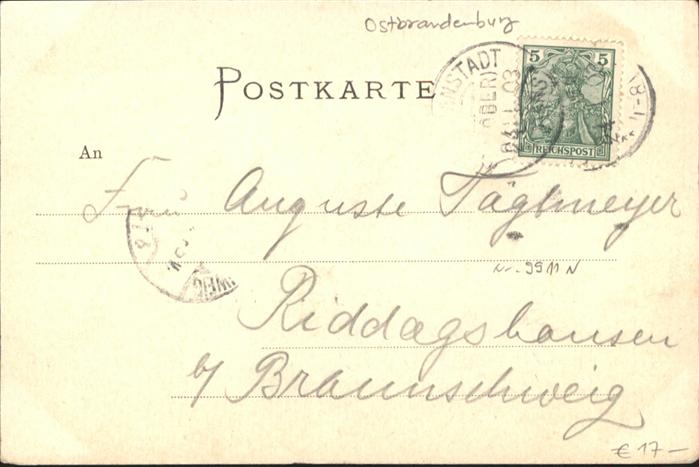 Ostbrandenburg
POSTKARTE
5 5
REICHSPOST
NSTADT
(OBER)
03
An
Frau Auguste Tägtmeyer
Nr. 9911 N
Riddagshausen
b/ Braunschweig
€ 17 –